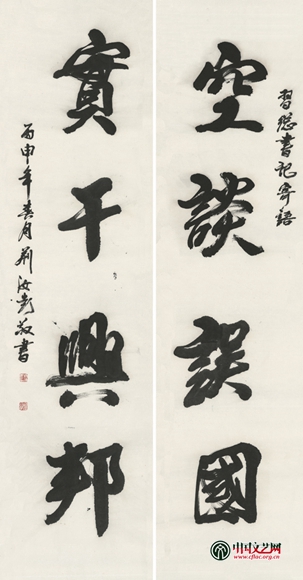 習總書記寄語
空談誤國
實干興邦
丙申年春月荆汝彪敬書
中国文艺网
www.cflac.org.cn